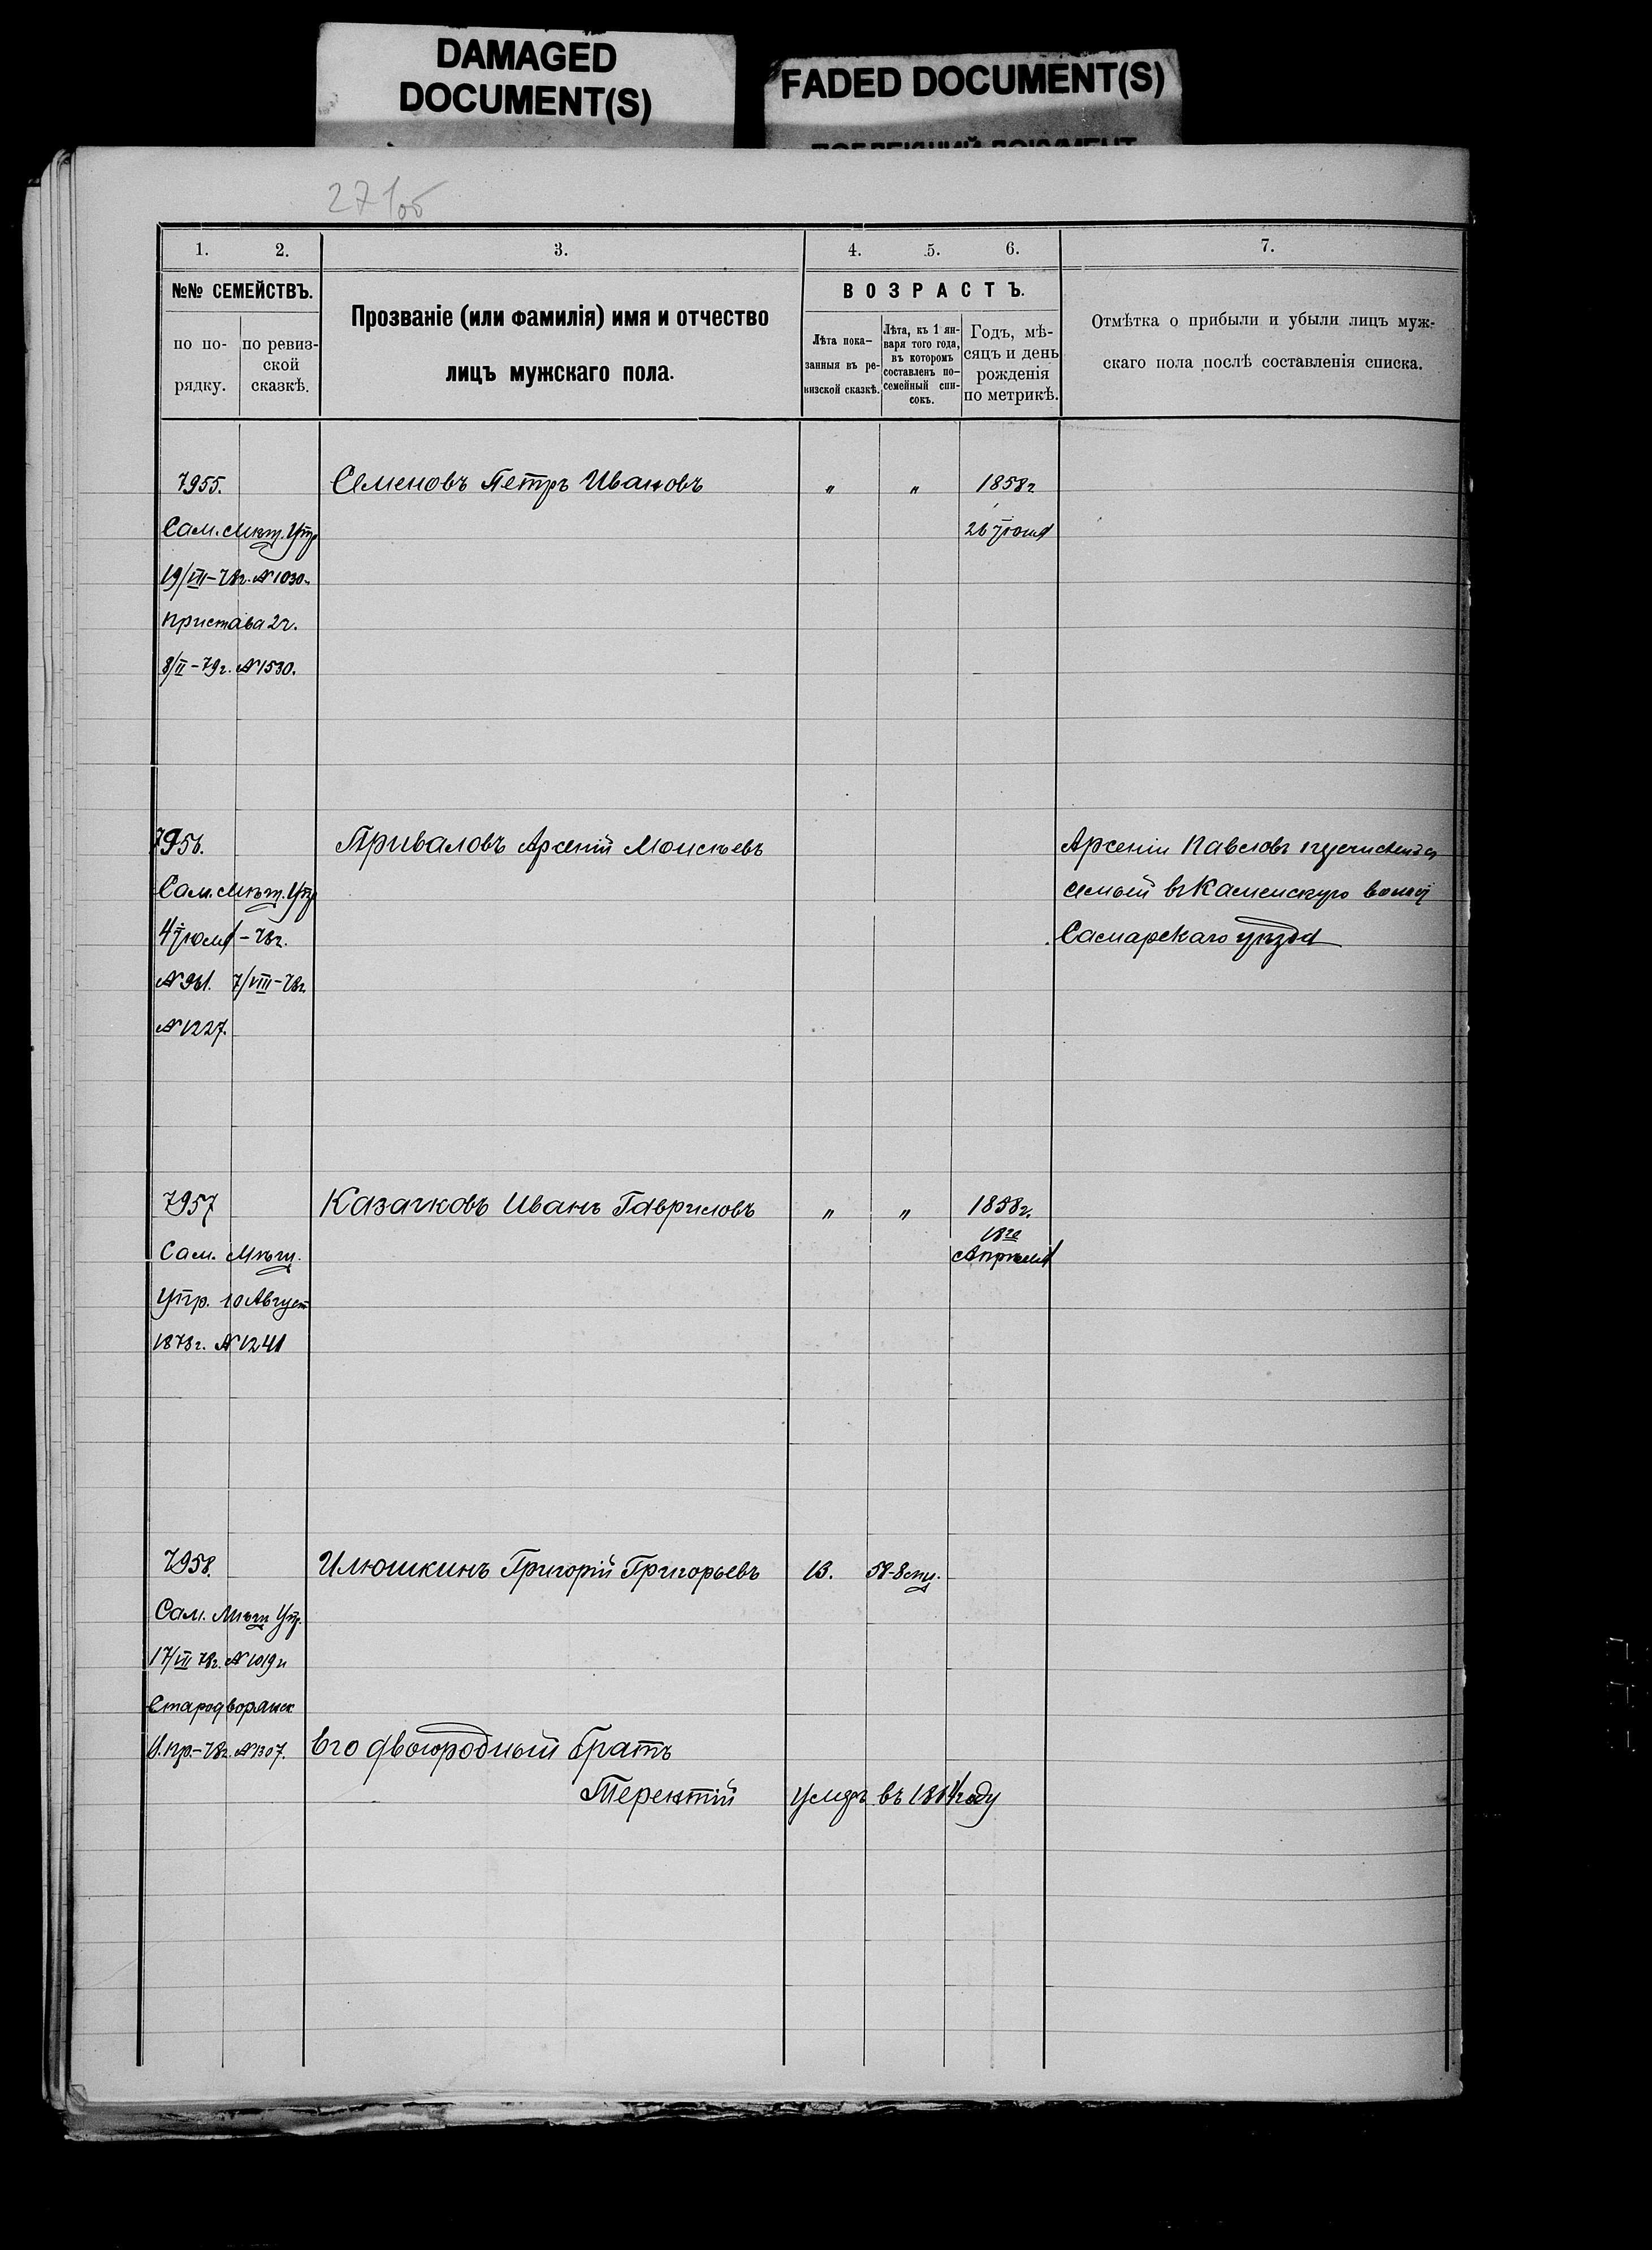 DAMAGED
DOCUMENT(S)
FADED DOCUMENT(S)
27 об
1. 2. 3. 4. 5. 6. 7.
№№ СЕМЕЙСТВЪ.
по по-
рядку.
по ревиз-
ской
сказкѣ.
Прозваніе (или фамилія) имя и отчество
лицъ мужскаго пола.
ВОЗРАСТЪ.
Лѣта пока-
занныя въ ре-
визской сказкѣ.
Лѣта, къ 1 ян-
варя того года,
въ которомъ
составленъ по-
семейный спи-
сокъ.
Годъ, мѣ-
сяцъ и день
рожденія
по метрикѣ.
Отмѣтка о прибыли и убыли лицъ муж-
скаго пола послѣ составленія списка.
7955. Семеновъ Петръ Ивановъ " " 1858г
Сам. Мѣщ. Упр 26 Іюня
19/VII-78г. №1030.
Пристава 2ч.
8/II-79г. №1530.
7956. Приваловъ Арсеній Моисѣевъ Арсеній Павловъ
Сам. Мѣщ. Упр семьей въ Каменскую
4 Іюля-78г. Самарскаго уѣзда
№961. 7/VIII-78г.
№1227.
7957 Казачковъ Иванъ Гавриловъ " " 1858г.
18го
Сам. Мѣщ. Апрѣля
Упр. 10 Август
1878г. №1241
7958. Илюшкинъ Григорій Григорьевъ 13. 58-8
Сам. Мѣщ Упр.
17/VII 78г. №1019и
Стародворянск
В.пр.-78г. №1307. Его двоюродный братъ
Терентій умеръ въ 1864 году